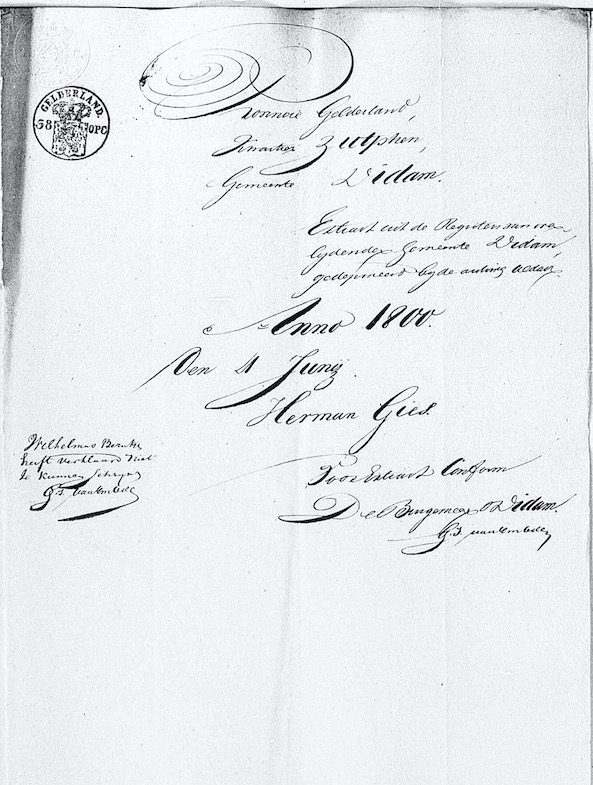 GELDERLAND.
38 OPC
Provincie Gelderland,
Kwartier Zutphen,
Gemeente Didam.
Extract uit de Registers van
lijdende Gemeente Didam,
gedeponeerd bij de
Anno 1800.
Den 4 Junij
Herman Gies.
Wilhelmus
heeft verklaard niet
te kunnen schrijven
G.J. van Embden
Voor Extract Conform
De Burgemeester v Didam.
G.J. van Embden